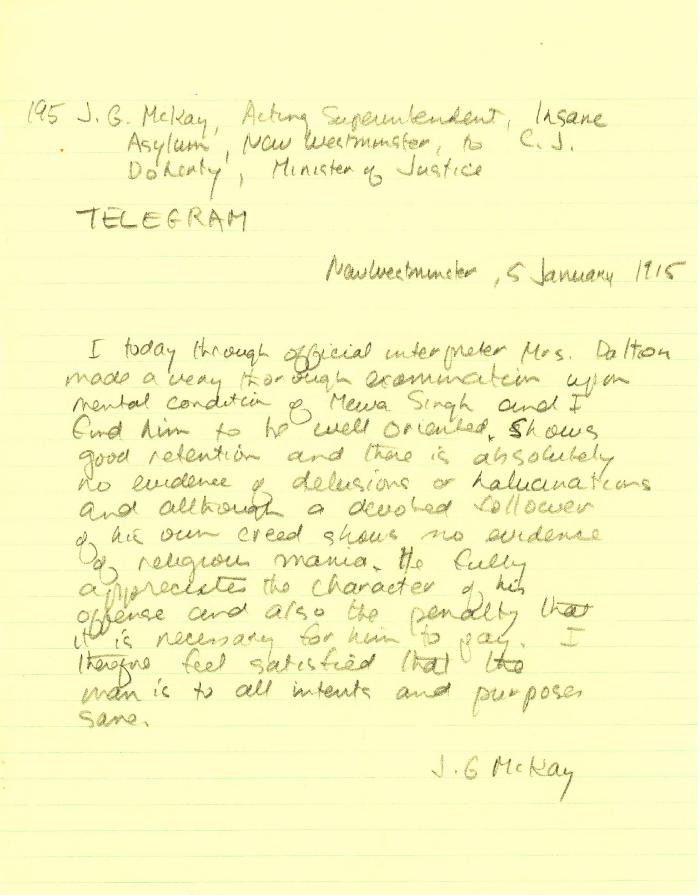 195 J. G. McKay, Acting Superintendent, Insane
Asylum, New Westminster, to C. J.
Doherty, Minister of Justice
TELEGRAM
New Westminster, 5 January 1915
I today through official interpreter Mrs. Dalton
made a very thorough examination upon
mental condition of Mewa Singh and I
find him to be well oriented. Shows
good retention and there is absolutely
no evidence of delusions or halucinations
and allthough a devoted follower
of his own creed shows no evidence
of religious mania. He fully
appreciates the character of his
offense and also the penalty that
it is necessary for him to pay. I
therefore feel satisfied that the
man is to all intents and purposes
sane.
J. G McKay